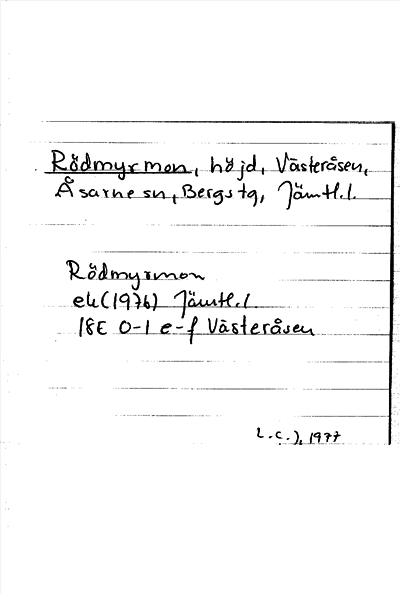 Rödmyrmon, höjd, Västeråsen,
Åsarne sn, Bergs tg, Jämtl.l.
Rödmyrmon
ek(1976) Jämtl.l
18E 0-1 e-f Västeråsen
L.C.), 1977